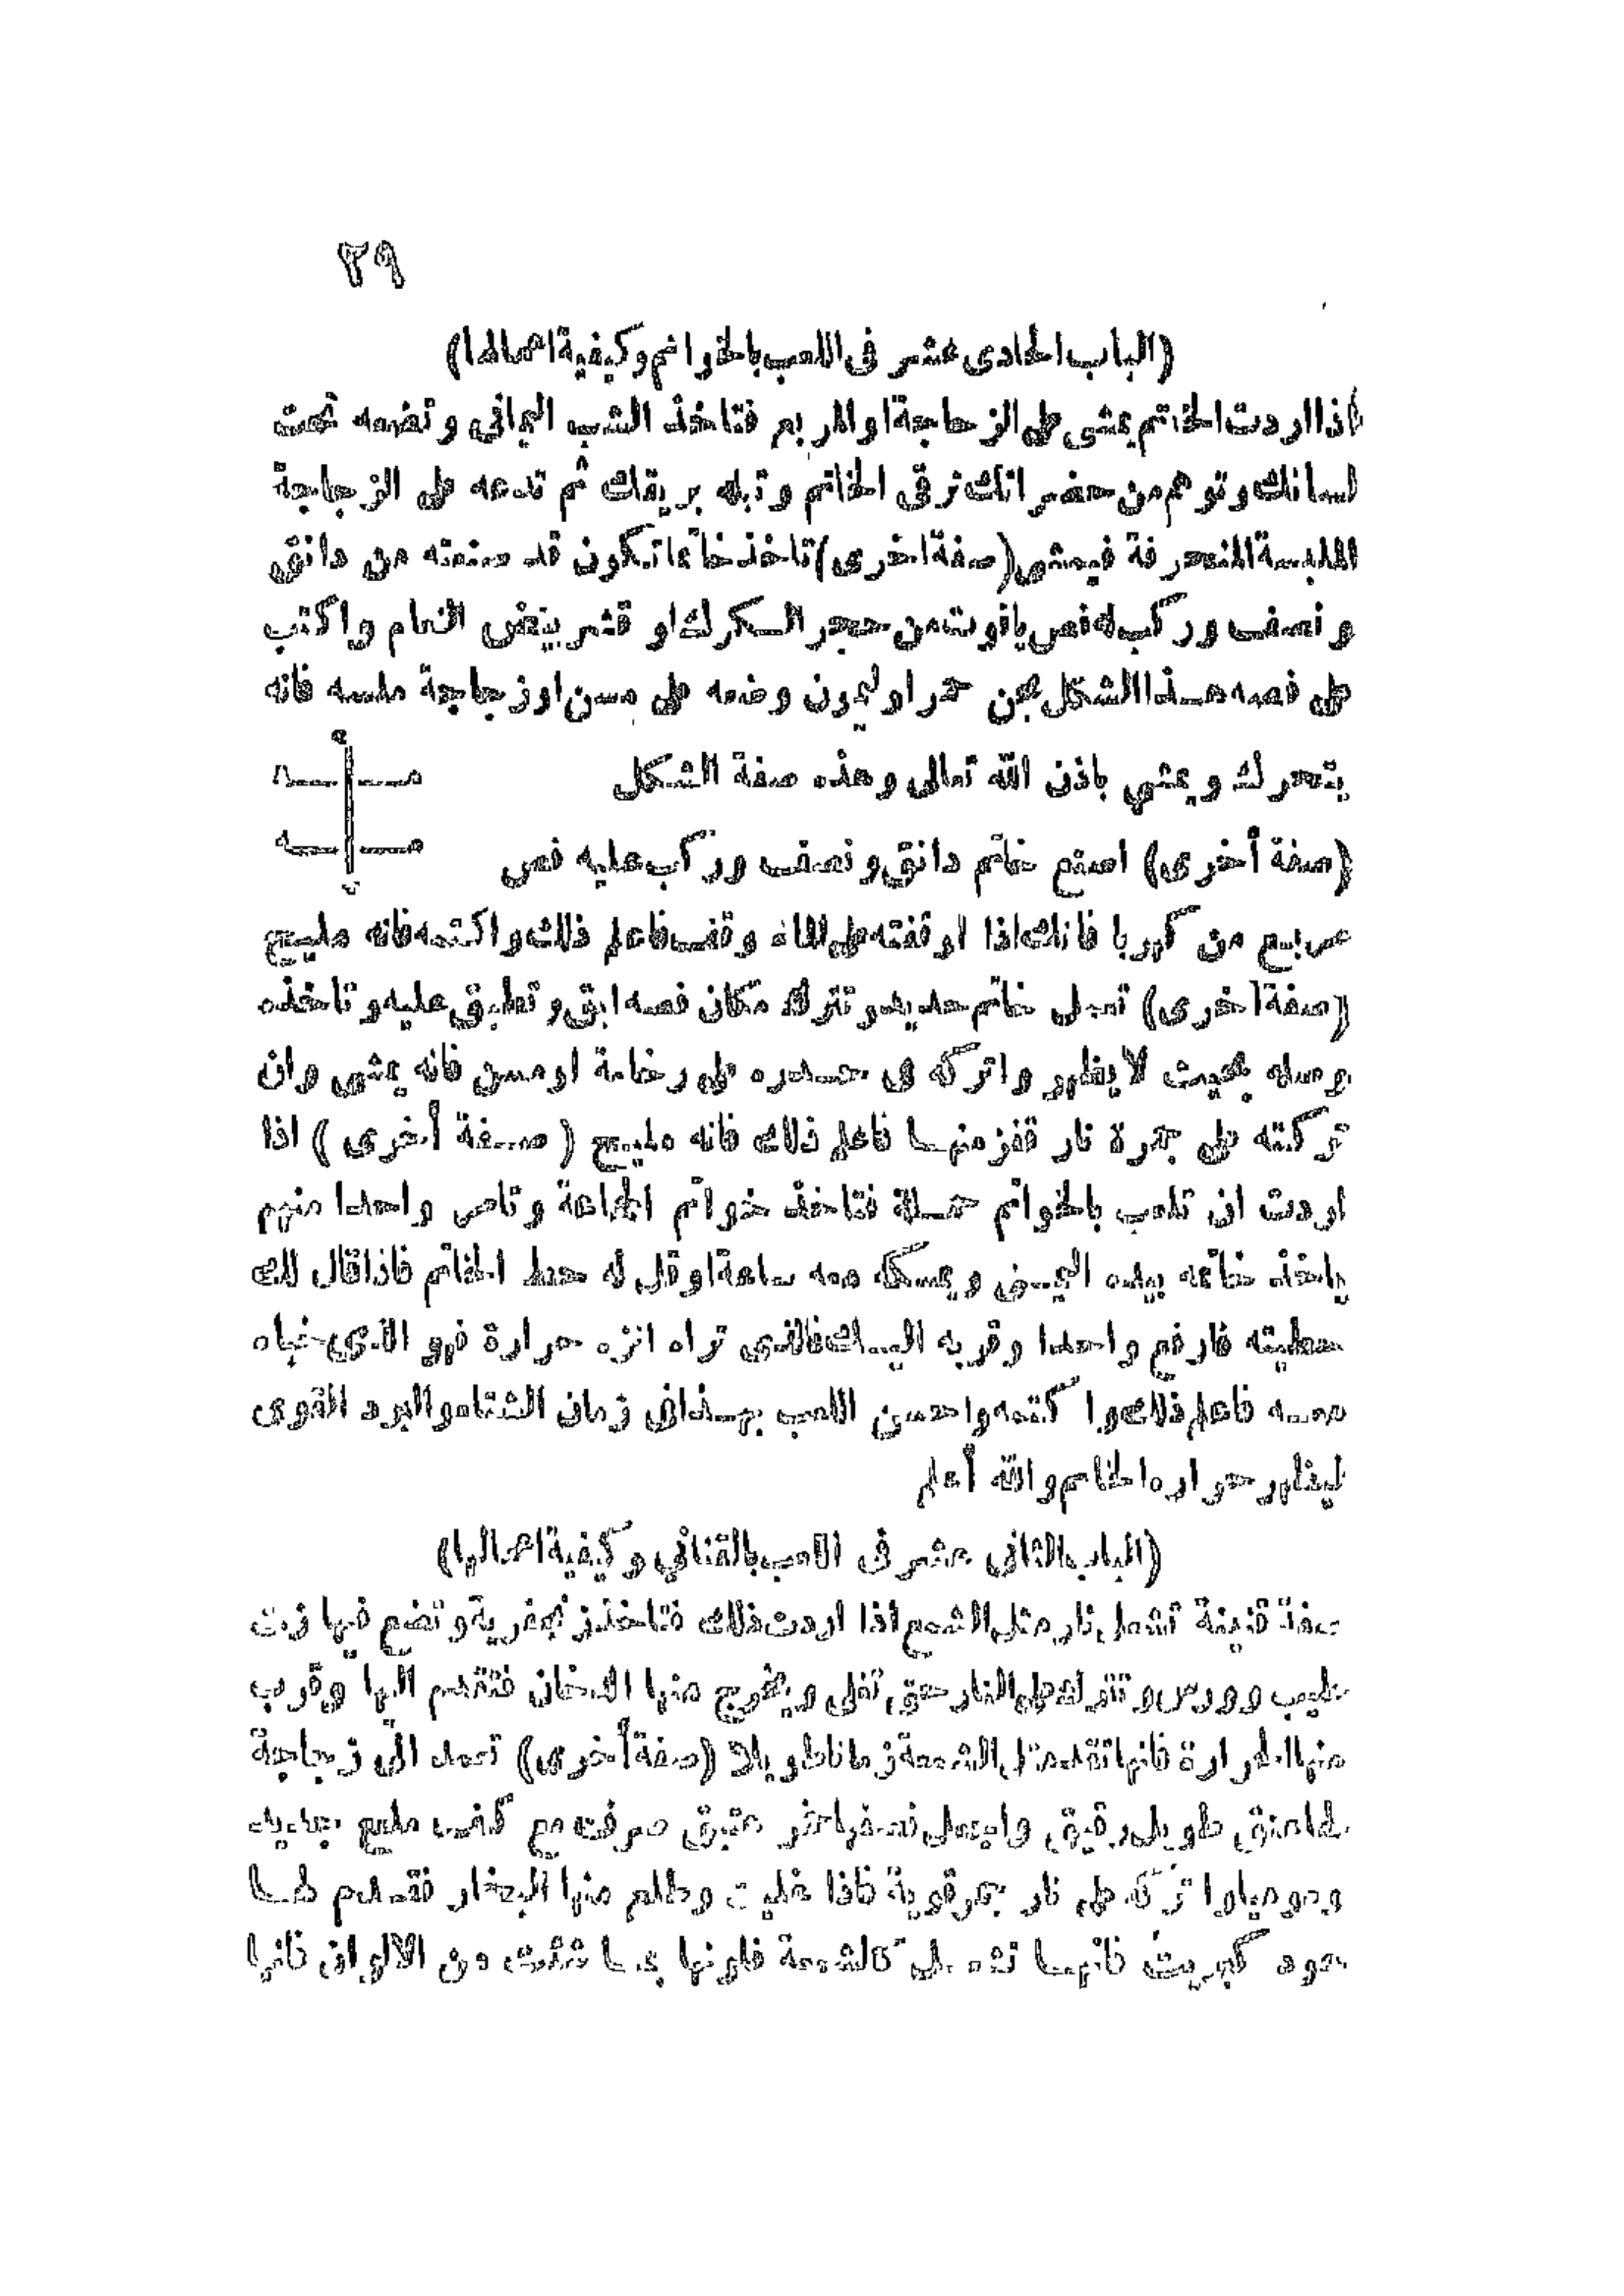 ٢٩
(الباب الحادى عشر فى اللعب بالخواتم وكيفية اعمالها)
اذا اردت الخاتم يمشى على الزجاجة او المر فتاخذ الشب اليمانى وتضعه تحت
لسانك وتوهم من حضر انك ترقى الخاتم وتبله بريقك ثم تدعه على الزجاجة
الملبسة المنحرفة فيمشى (صفة اخرى) تاخذ خاتما تكون قد صنعته من دانق
ونصف وركب له فص ياقوت من حجر السكرك او قشر بيض النعام واكتب
على فصه هذا الشكل خمر او ليمون وضعه على مسن او زجاجة ملسه فانه
يتحرك ويمشي باذن الله تعالى وهذه صفة الشكل
(صفة أخرى) اصنع خاتم دانق ونصف وركب عليه فص
من كهربا فانك اذا اوقفته على الماء وقف فاعلم ذلك واكتمه فانه مليح
(صفة اخرى) تعمل خاتم حديد وتترك مكان فصه ابق وتطبق عليه وتاخذه
وصله بحيث لا يظهر واتركه فى صدره على رخامة او مسن فانه يمشى وان
تركته على جمرة نار قفز منها فاعلم ذلك فانه مليح (صفة أخرى) اذا
اردت ان تلعب بالخواتم جملة فتاخذ خواتم الجماعة وتامر واحدا منهم
ياخذ خاتمه بيده اليمين ويمسكه معه ساعة او قل له حط الخاتم فاذا قال لك
حطيته فارفع واحدا وقربه اليك فالذى تراه انزه حرارة فهو الذى خباه
معه فاعلم ذلك واكتمه واحسن اللعب بهذا فى زمان الشتاء والبرد القوى
ليظهر حراره الخاتم والله أعلم
(الباب الثانى عشر فى اللعب بالقنانى وكيفية اعمالها)
صفة قنينة تشعل نار مثل الشمع اذا اردت ذلك فتاخذ زنجفرية وتضع فيها زيت
طيب وورس وتتركه على النار حتى تغلى ويخرج منها الدخان فتقدم اليها وقرب
منها الحرارة فانها تقد مثل الشمعة زمانا طويلا (صفة أخرى) تعمد الى زجاجة
لها عنق طويل رقيق واجعل نصفها خمر عتيق صرف مع كف ملح جديد
واتركه على نار جمر قوية فاذا غليت وطلع منها البخار فقدم لها
عود كبريت فانها تشعل كالشمعة فلونها بما شئت من الالوان فانها